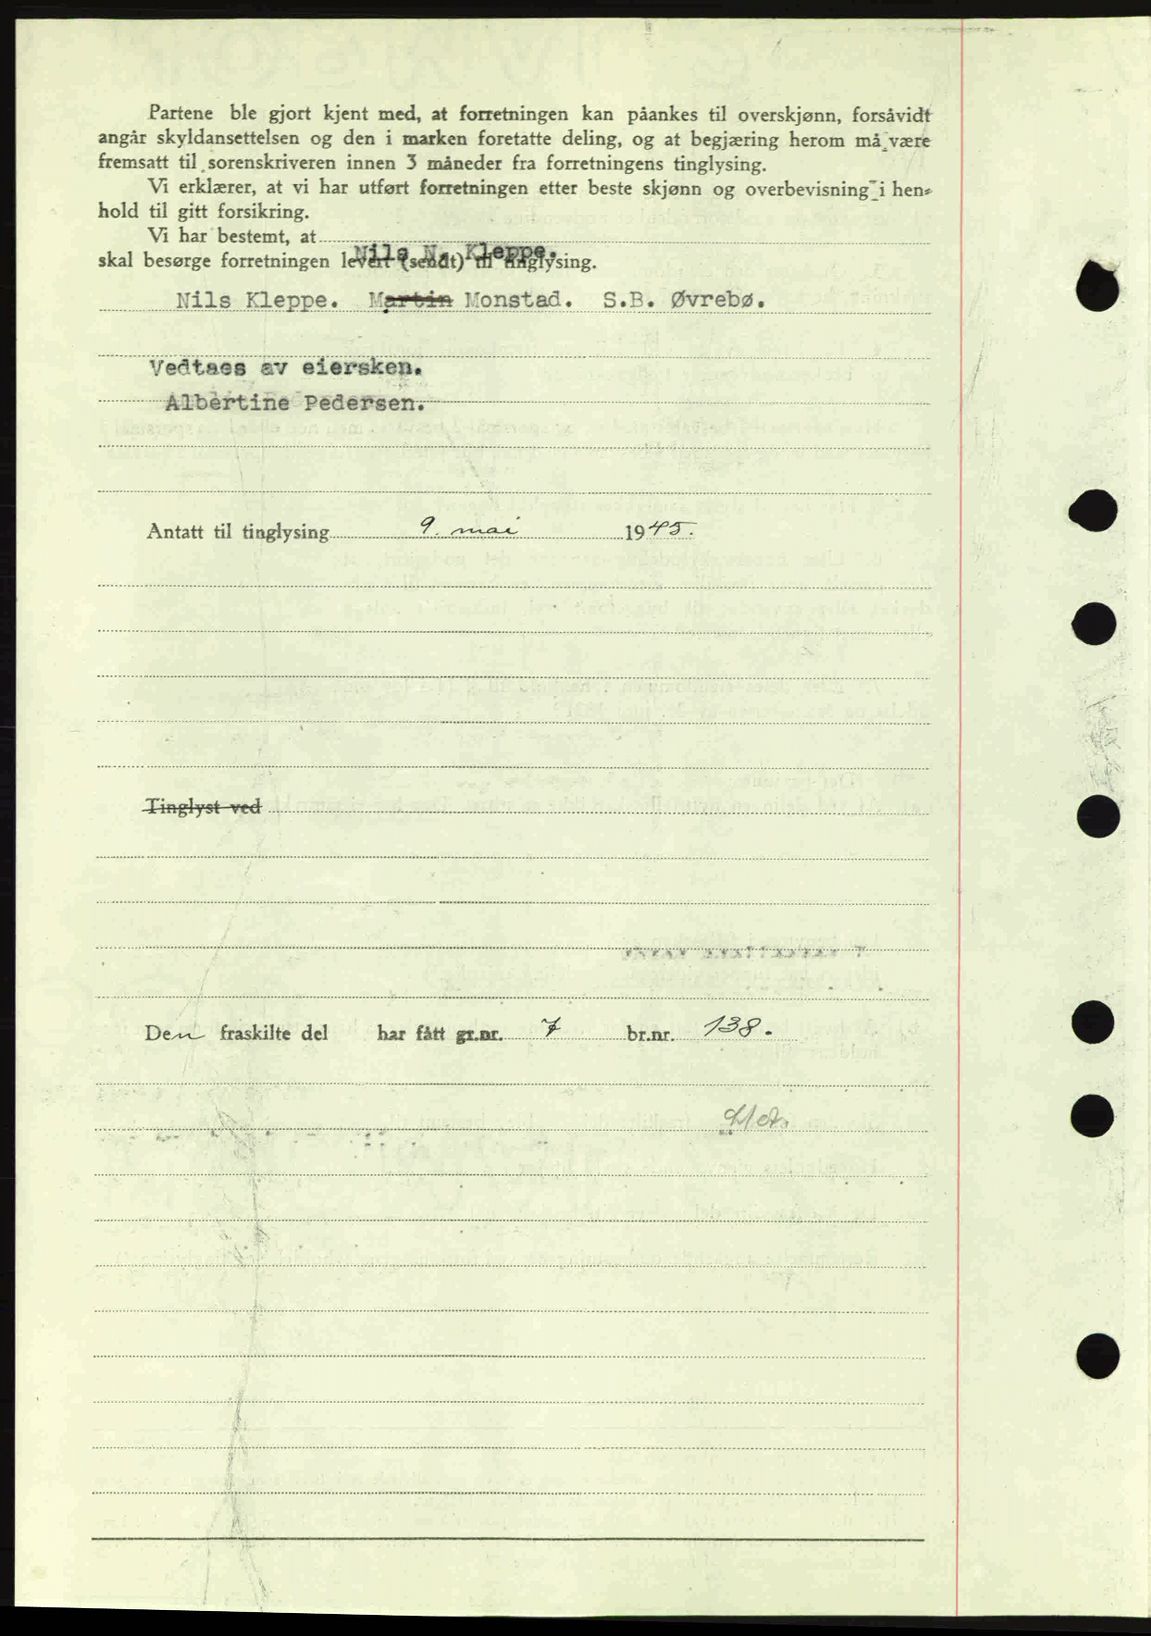 Partene ble gjort kjent med, at forretningen kan påankes til overskjønn, forsåvidt
angår skyldansettelsen og den i marken foretatte deling, og at begjæring herom må være
fremsatt til sorenskriveren innen 3 måneder fra forretningens tinglysing.
Vi erklærer, at vi har utført forretningen etter beste skjønn og overbevisning i hen-
hold til gitt forsikring.
Vi har bestemt, at
Nils N. Kleppe.
skal besørge forretningen levert (sendt) til tinglysing.
Nils Kleppe. Martin Monstad. S.B. Øvrebø.
Vedtaes av eiersken.
Albertine Pedersen.
Antatt til tinglysing 9. mai 1945.
Tinglyst ved
Den fraskilte del har fått gr.nr. 7 br.nr. 138.